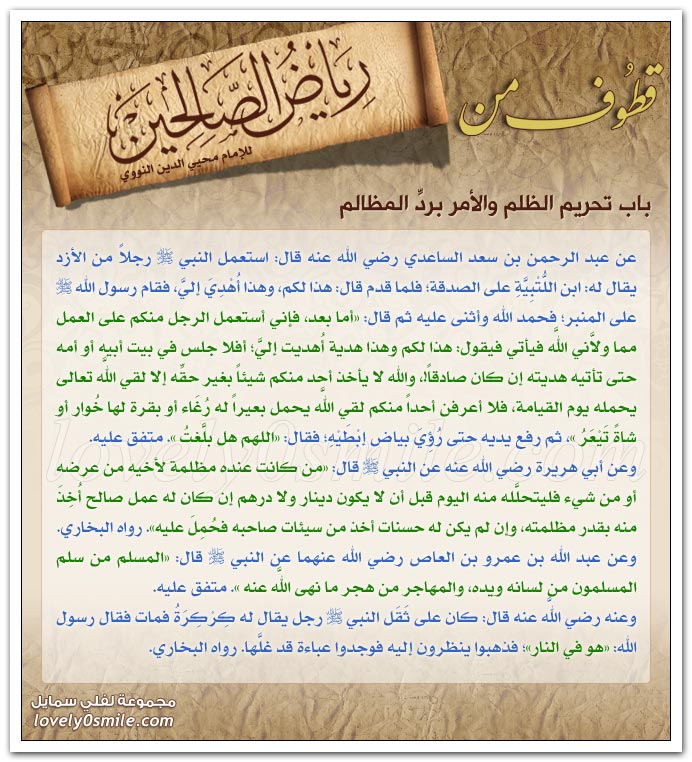 قطوف من
رياض الصالحين
للإمام محيي الدين النووي
باب تحريم الظلم والأمر بردِّ المظالم
عن عبد الرحمن بن سعد الساعدي رضي الله عنه قال: استعمل النبي ﷺ رجلاً من الأزد
يقال له: ابن اللُّتْبِيَّةِ على الصدقة؛ فلما قدم قال: هذا لكم، وهذا أُهْدِيَ إليَّ، فقام رسول الله ﷺ
على المنبر؛ فحمد الله وأثنى عليه ثم قال: «أما بعد، فإني أستعمل الرجل منكم على العمل
مما ولاَّني اللَّه فيأتي فيقول: هذا لكم وهذا هدية أُهديت إليَّ؛ أفلا جلس في بيت أبيه أو أمه
حتى تأتيه هديته إن كان صادقاً!، والله لا يأخذ أحد منكم شيئاً بغير حقِّه إلا لقي الله تعالى
يحمله يوم القيامة، فلا أعرفن أحداً منكم لقي اللَّه يحمل بعيراً له رُغَاء أو بقرة لها خُوار أو
شاةً تَيْعَرُ »، ثم رفع يديه حتى رُؤِيَ بياض إبْطَيْهِ؛ فقال: «اللهم هل بلَّغتُ ». متفق عليه.
وعن أبي هريرة رضي الله عنه عن النبي ﷺ قال: «من كانت عنده مظلمة لأخيه من عرضه
أو من شيء فليتحلَّله منه اليوم قبل أن لا يكون دينار ولا درهم إن كان له عمل صالح أُخِذَ
منه بقدر مظلمته، وإن لم يكن له حسنات أخذ من سيئات صاحبه فحُمِلَ عليه». رواه البخاري.
وعن عبد الله بن عمرو بن العاص رضي الله عنهما عن النبي ﷺ قال: «المسلم من سلم
المسلمون من لسانه ويده، والمهاجر من هجر ما نهى اللَّه عنه ». متفق عليه.
وعنه رضي اللَّه عنه قال: كان على ثَقَل النبي ﷺ رجل يقال له كِرْكِرَةُ فمات فقال رسول
الله: «هو في النار»؛ فذهبوا ينظرون إليه فوجدوا عباءة قد غلَّها. رواه البخاري.
lovely0smile.com
مجموعة لفلي سمايل
lovely0smile.com